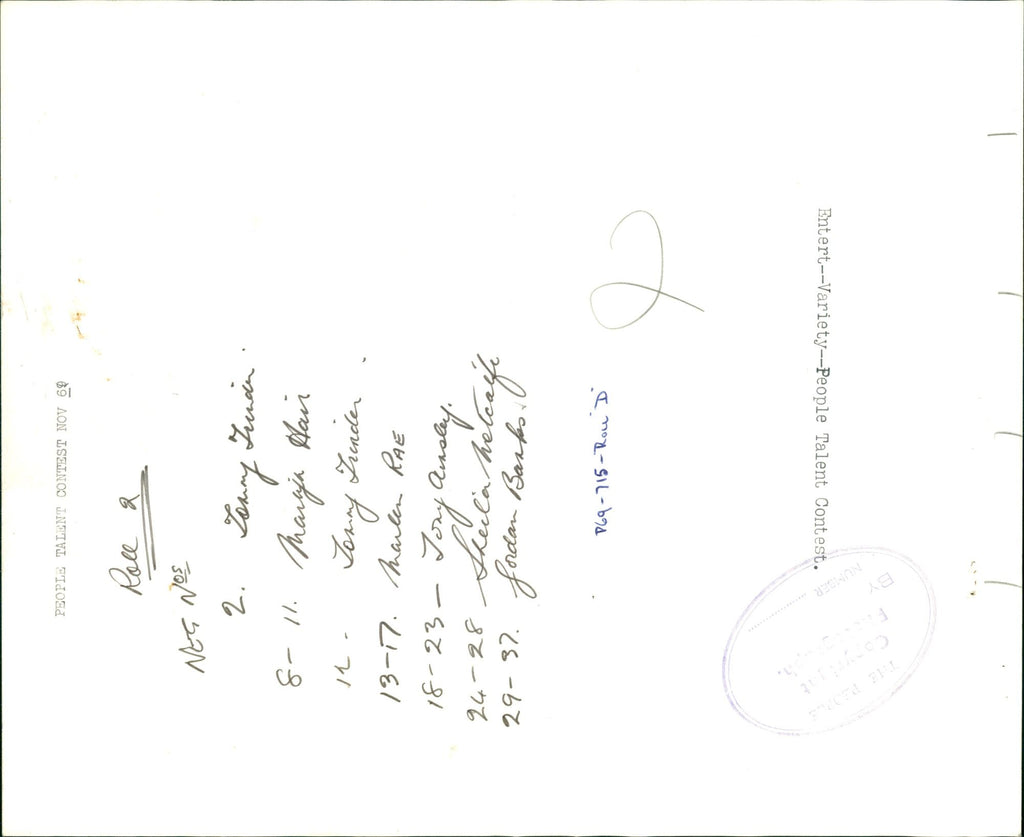 PEOPLE TALENT CONTEST NOV 69
Roll 2
NEG Nos
2. Tommy Trinder.
8-11. Hair
12 - Tommy Trinder.
13-17. Marlen RAE
18-23 — Tony Ainsley.
24-28 Sheila Metcalfe
29-37. Gordon Banks.
P69-715-Roll 'D'
2
Entert--Variety--People Talent Contest.
THE PEOPLE
Copyright
Photograph.
BY
NUMBER